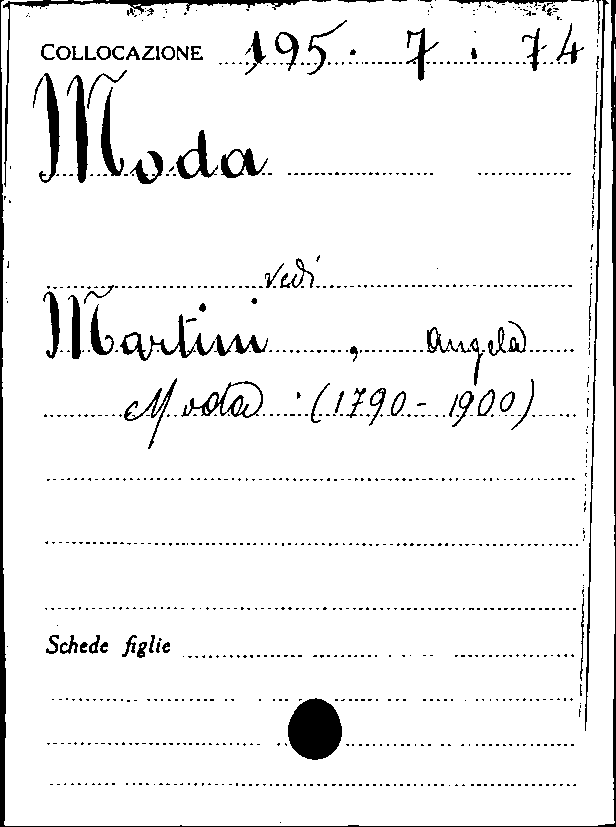 COLLOCAZIONE 195. 7. 74
Moda
vedi
Martini, Angela
Moda. (1790-1900)
Schede figlie